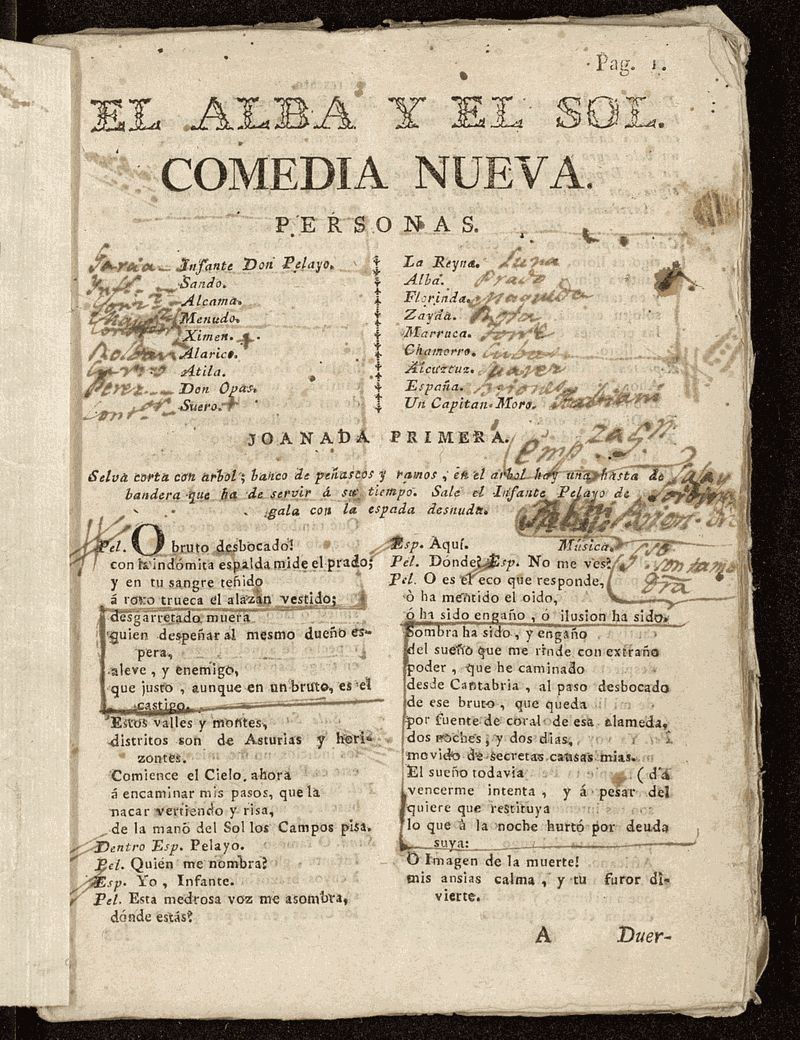 Pag. 1.
EL ALBA Y EL SOL.
COMEDIA NUEVA.
PERSONAS.
Garcia Infante Don Pelayo.
Sando.
Alcama.
Menudo.
Ximen. +
Roldan Alarico.
Atila.
Perez Don Opas.
Suero. +
La Reyna. Luna
Alba. Prado
Florinda. Maqueda
Zayda. Rosa
Marruca. Torre
Chamorro. Cubas
Alcuzcuz. Suarez
España.
Un Capitan Moro. Fabiani
JOANADA PRIMERA.
Selva corta con arbol; banco de peñascos y ramos, en el arbol hay una hasta de
bandera que ha de servir á su tiempo. Sale el Infante Pelayo de
gala con la espada desnuda.
Pel. O bruto desbocado!
con la indómita espalda mide el prado;
y en tu sangre teñido
á roxo trueca el alazan vestido;
desgarretado muera
quien despeñar al mismo dueño es-
pera,
aleve, y enemigo,
que justo, aunque en un bruto, es el
castigo.
Estos valles y montes,
distritos son de Asturias y hori-
zontes.
Comience el Cielo, ahora
á encaminar mis pasos, que la
nacar vertiendo y risa,
de la mano del Sol los Campos pisa.
Dentro Esp. Pelayo.
Pel. Quién me nombra?
Esp. Yo, Infante.
Pel. Esta medrosa voz me asombra,
dónde estás?
Esp. Aquí. Música.
Pel. Dónde? Esp. No me ves?
Pel. O es el eco que responde,
ò ha mentido el oido,
ó ha sido engaño, ó ilusion ha sido.
Sombra ha sido, y engaño
del sueño que me rinde con extraño
poder, que he caminado
desde Cantabria, al paso desbocado
de ese bruto, que queda
por fuente de coral de esa alameda,
dos noches, y dos dias,
movido de secretas causas mias.
El sueño todavia (dá
vencerme intenta, y á pesar del
quiere que restituya
lo que à la noche hurtó por deuda
suya:
O Imagen de la muerte!
mis ansias calma, y tu furor di-
vierte.
A Duer-